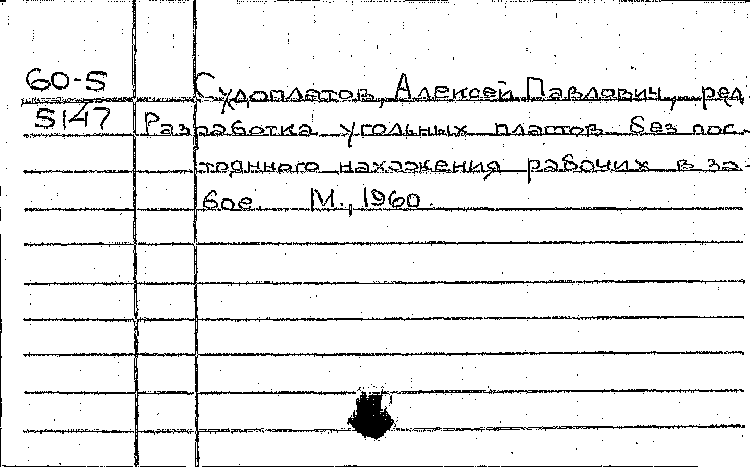 60-5
5147
Судоплатов, Алексей Павлович, ред.
Разработка угольных пластов без пос-
тоянного нахожения рабочих в за-
бое. М., 1960.